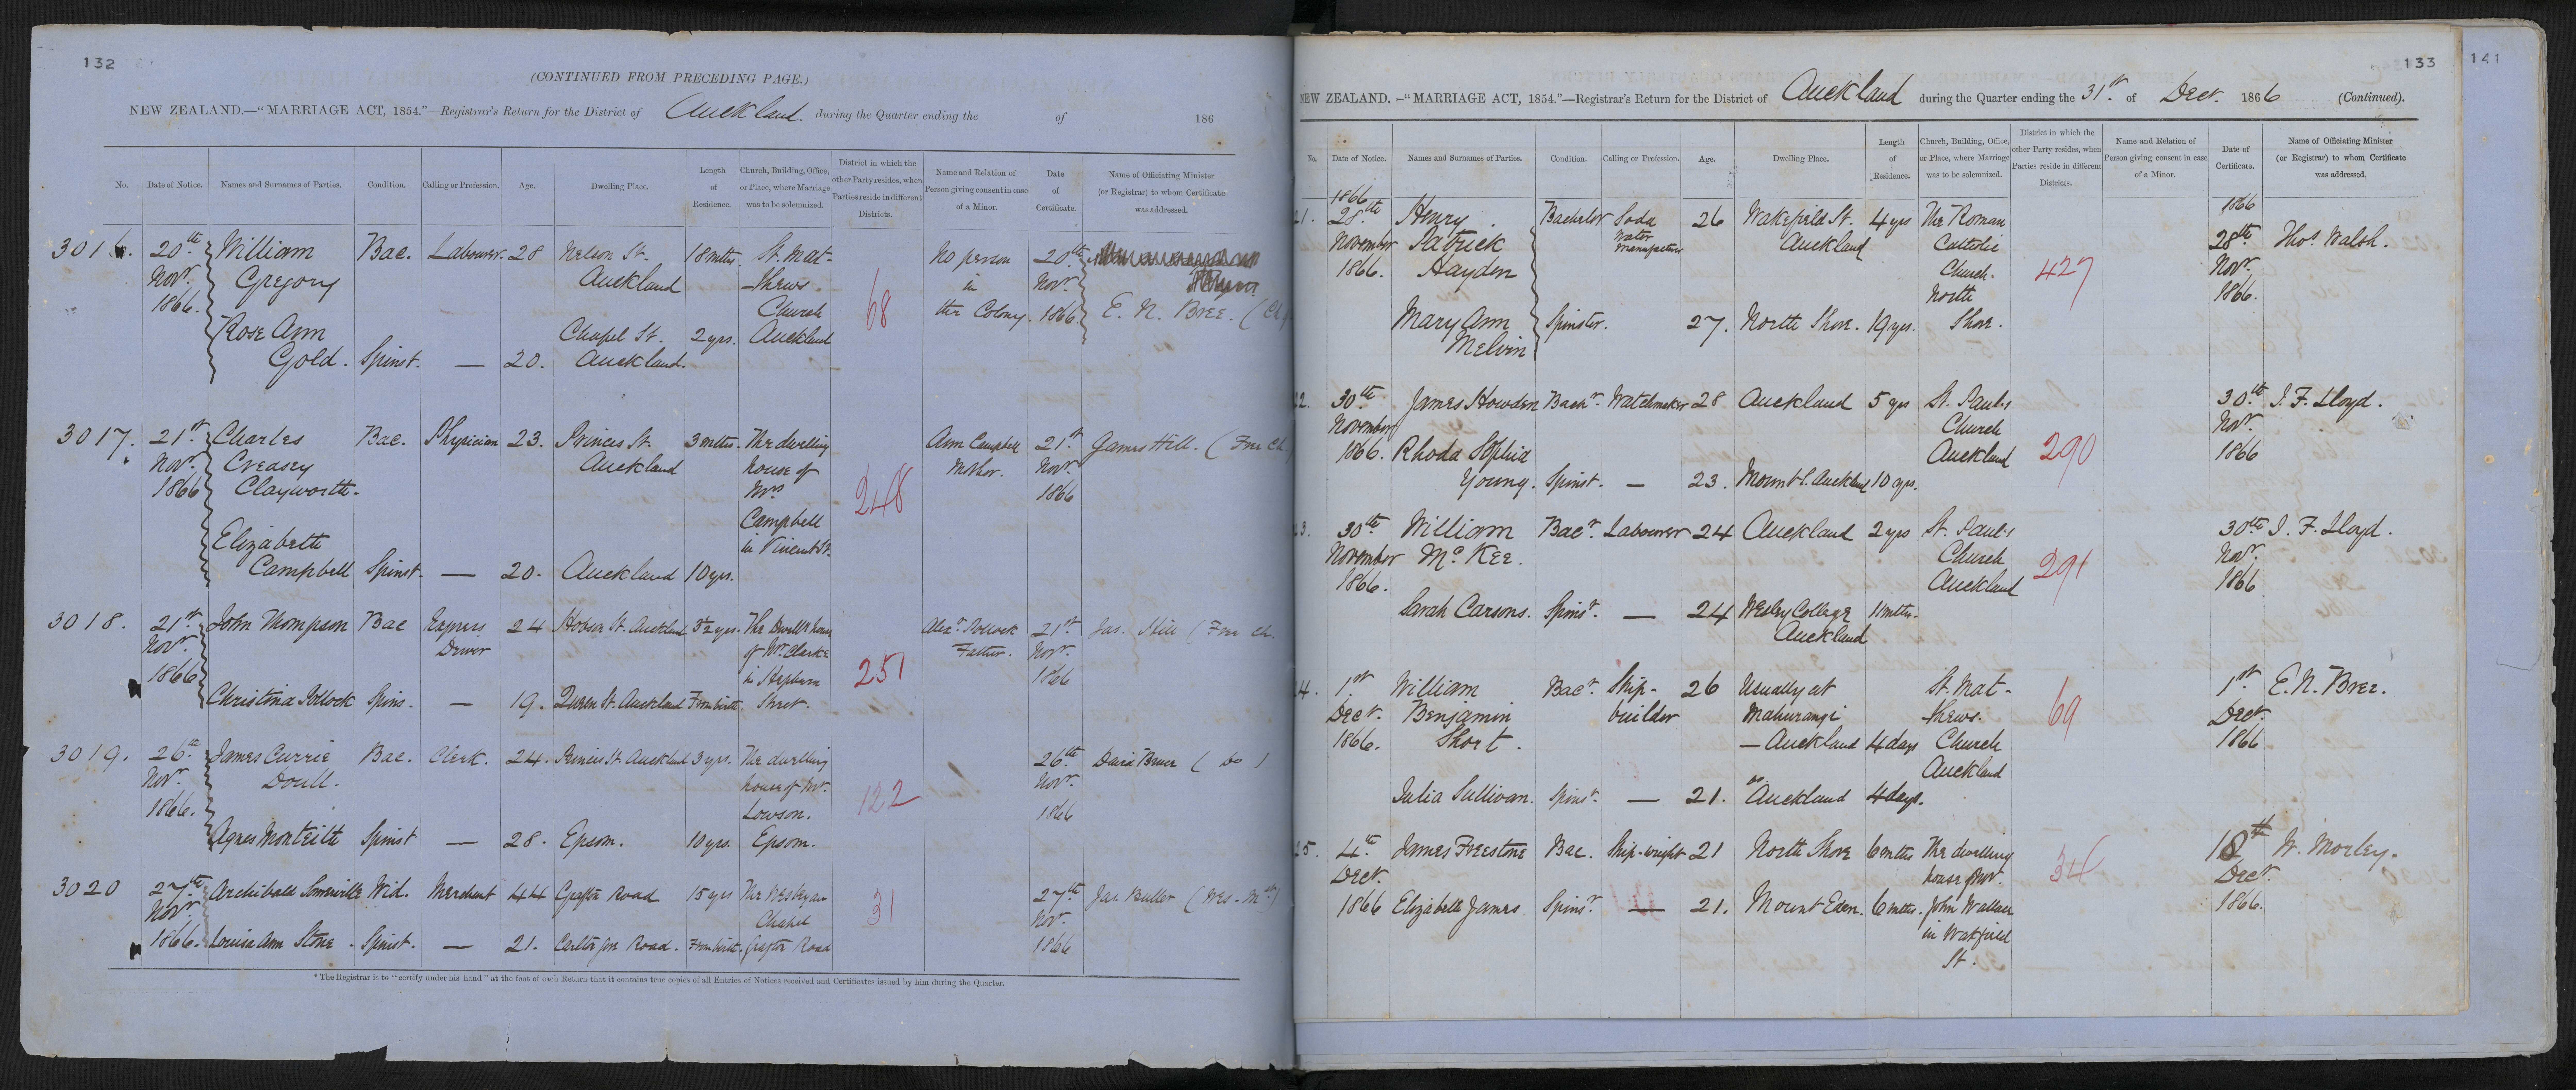 132
(CONTINUED FROM PRECEDING PAGE.)
NEW ZEALAND.—“MARRIAGE ACT, 1854.”—Registrar's Return for the District of Auckland. during the Quarter ending the of 186
No. Date of Notice. Names and Surnames of Parties. Condition. Calling or Profession. Age. Dwelling Place. Length of Residence. Church, Building, Office, or Place, where Marriage was to be solemnized. District in which the other Party resides, when Parties reside in different Districts. Name and Relation of Person giving consent in case of a Minor. Date of Certificate. Name of Officiating Minister (or Registrar) to whom Certificate was addressed.
3016. 20th Nov. 1866. William Gregory Bac. Labourer. 28 Nelson St. Auckland 18 mths. St. Matthews Church Auckland 68 No person in the Colony. 20th Nov. 1866 E. N. Bree. (Ch
Rose Ann Gold. Spinst. — 20. Chapel St. Auckland. 2 yrs.
3017. 21st Nov. 1866 Charles Creasey Clayworth Bac. Physician 23. Princes St. Auckland 3 mths. The dwelling house of Mrs Campbell in Vincent St. 248 Ann Campbell Mother. 21st Nov. 1866 James Hill. (Free Ch
Elizabeth Campbell Spinst. — 20. Auckland 10 yrs.
3018. 21st Nov. 1866 John Thompson Bac Express Driver 24 Hobson St. Auckland 3½ yrs. The Dwellg house of Mr. Clarke in Hepburn Street. 251 Alexr. Pollock Father. 21st Nov. 1866 Jas. Hill (Free Ch.
Christina Pollock Spins. — 19. Queen St. Auckland From birth.
3019. 26th Nov. 1866. James Currie Doull. Bac. Clerk. 24. Princes St Auckland 3 yrs. The dwelling house of Mr. Lowson. Epsom. 122 26th Nov. 1866 David Bruce (Do)
Agnes Monteith Spinst — 28. Epsom. 10 yrs.
3020 27th Nov. 1866. Archibald Somerville Wid. Merchant 44 Grafton Road 15 yrs The Wesleyan Chapel Grafton Road 31 27th Nov. 1866 Jas. Buller (Wes-
Louisa Ann Stone. Spinst. — 21. Carlton Gore Road. From birth.
* The Registrar is to “certify under his hand” at the foot of each Return that it contains true copies of all Entries of Notices received and Certificates issued by him during the Quarter.
133
141
NEW ZEALAND.—“MARRIAGE ACT, 1854.”—Registrar's Return for the District of Auckland during the Quarter ending the 31st of Decr. 1866 (Continued).
No. Date of Notice. Names and Surnames of Parties. Condition. Calling or Profession. Age. Dwelling Place. Length of Residence. Church, Building, Office, or Place, where Marriage was to be solemnized. District in which the other Party resides, when Parties reside in different Districts. Name and Relation of Person giving consent in case of a Minor. Date of Certificate. Name of Officiating Minister (or Registrar) to whom Certificate was addressed.
21. 1866 28th November 1866. Henry Patrick Hayden Bachelor Soda water manufacturer 26 Wakefield St. Auckland 4 yrs The Roman Catholic Church. North Shore. 427 1866 28th Nov. 1866. Thos. Walsh.
Mary Ann Melvin Spinster. 27. North Shore. 19 yrs.
22. 30th November 1866. James Howden Bachr. Watchmaker 28 Auckland 5 yrs St. Pauls Church Auckland 290 30th Nov. 1866 J. F. Lloyd.
Rhoda Sophia Young. Spinst. — 23. Mount St. Auckland 10 yrs.
23. 30th November 1866. William McKee. Bacr. Labourer 24 Auckland 2 yrs St. Pauls Church Auckland 291 30th Nov. 1866 J. F. Lloyd.
Sarah Carsons. Spinsr. — 24 Wesley College Auckland 11 mths.
24. 1st Decr. 1866. William Benjamin Short. Bacr. Ship-builder 26 Usually at Mahurangi — Auckland 4 days St. Matthews. Church Auckland 69 1st Decr. 1866 E. N. Bree.
Julia Sullivan. Spinsr. — 21. do Auckland 4 days.
25. 4th Decr. 1866 James Freestone Bac. Ship-wright 21 North Shore 6 mths The dwelling house of Mr. John Wallace in Wakefield St. 34 18th Decr. 1866. W. Morley.
Elizabeth James Spinsr. — 21. Mount Eden. 6 mths.